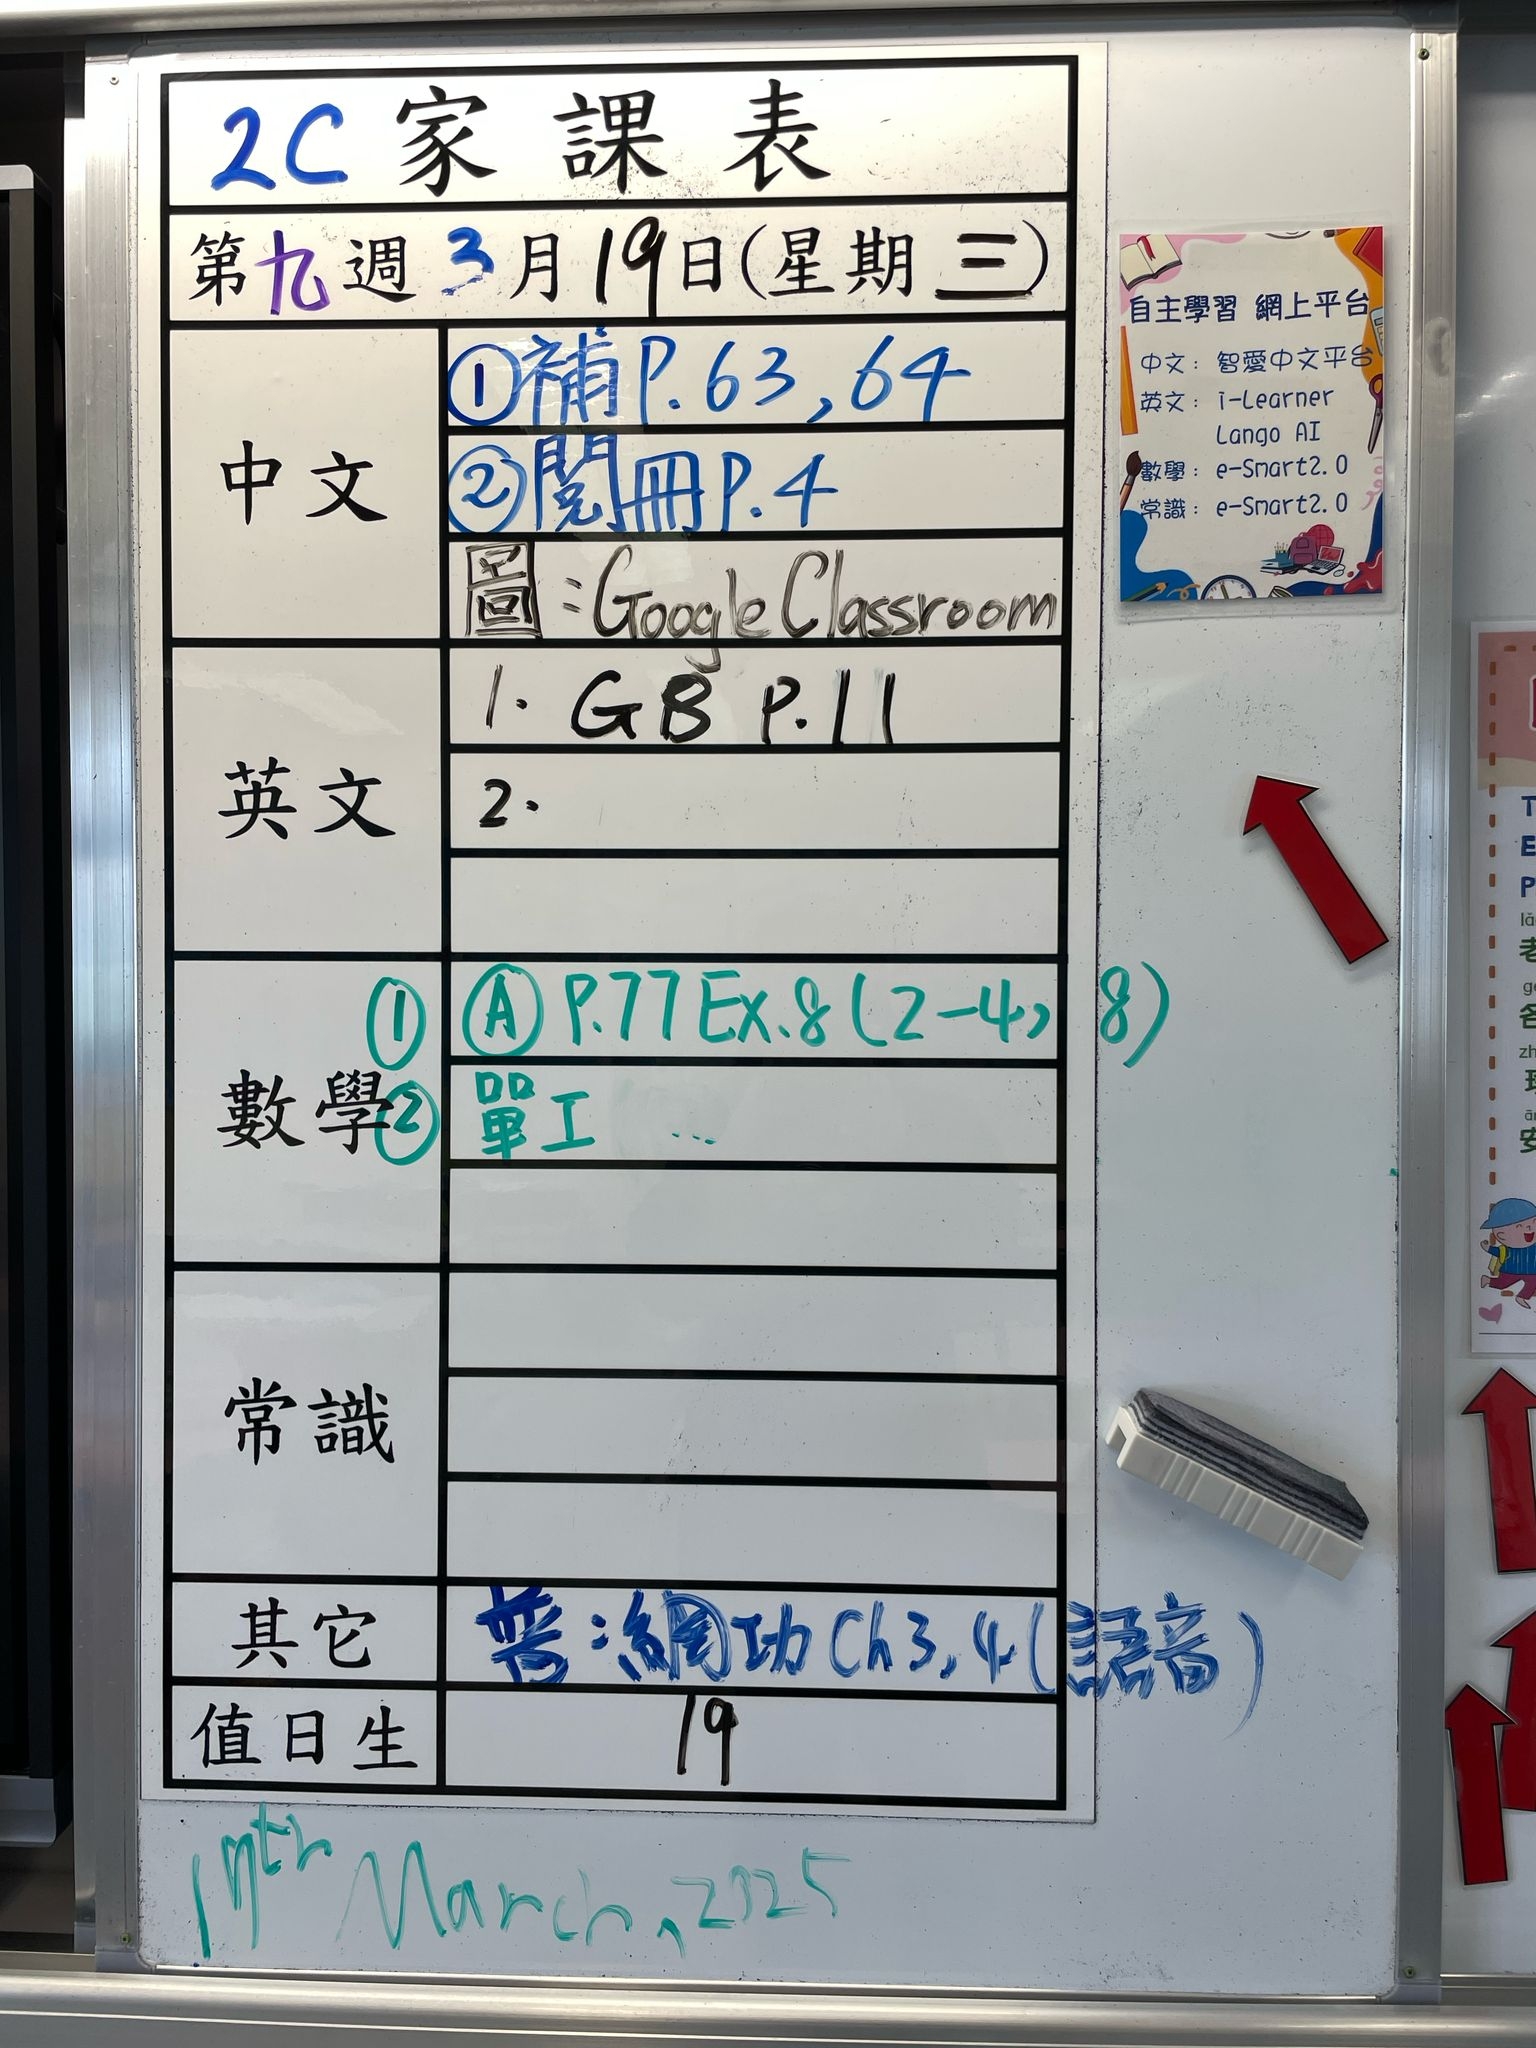 2C家課表
第九週3月19日(星期三)
中文
①補P.63,64
②閱冊P.4
圖:Google Classroom
英文
1. GB P.11
2.
數學
① Ⓐ P.77 Ex.8(2-4, 8)
② 單工 ...
常識
其它
普:網功Ch3,4(語音)
值日生
19
March, 2025
自主學習 網上平台
中文: 智愛中文平台
英文: i-Learner
Lango AI
數學: e-Smart2.0
常識: e-Smart2.0